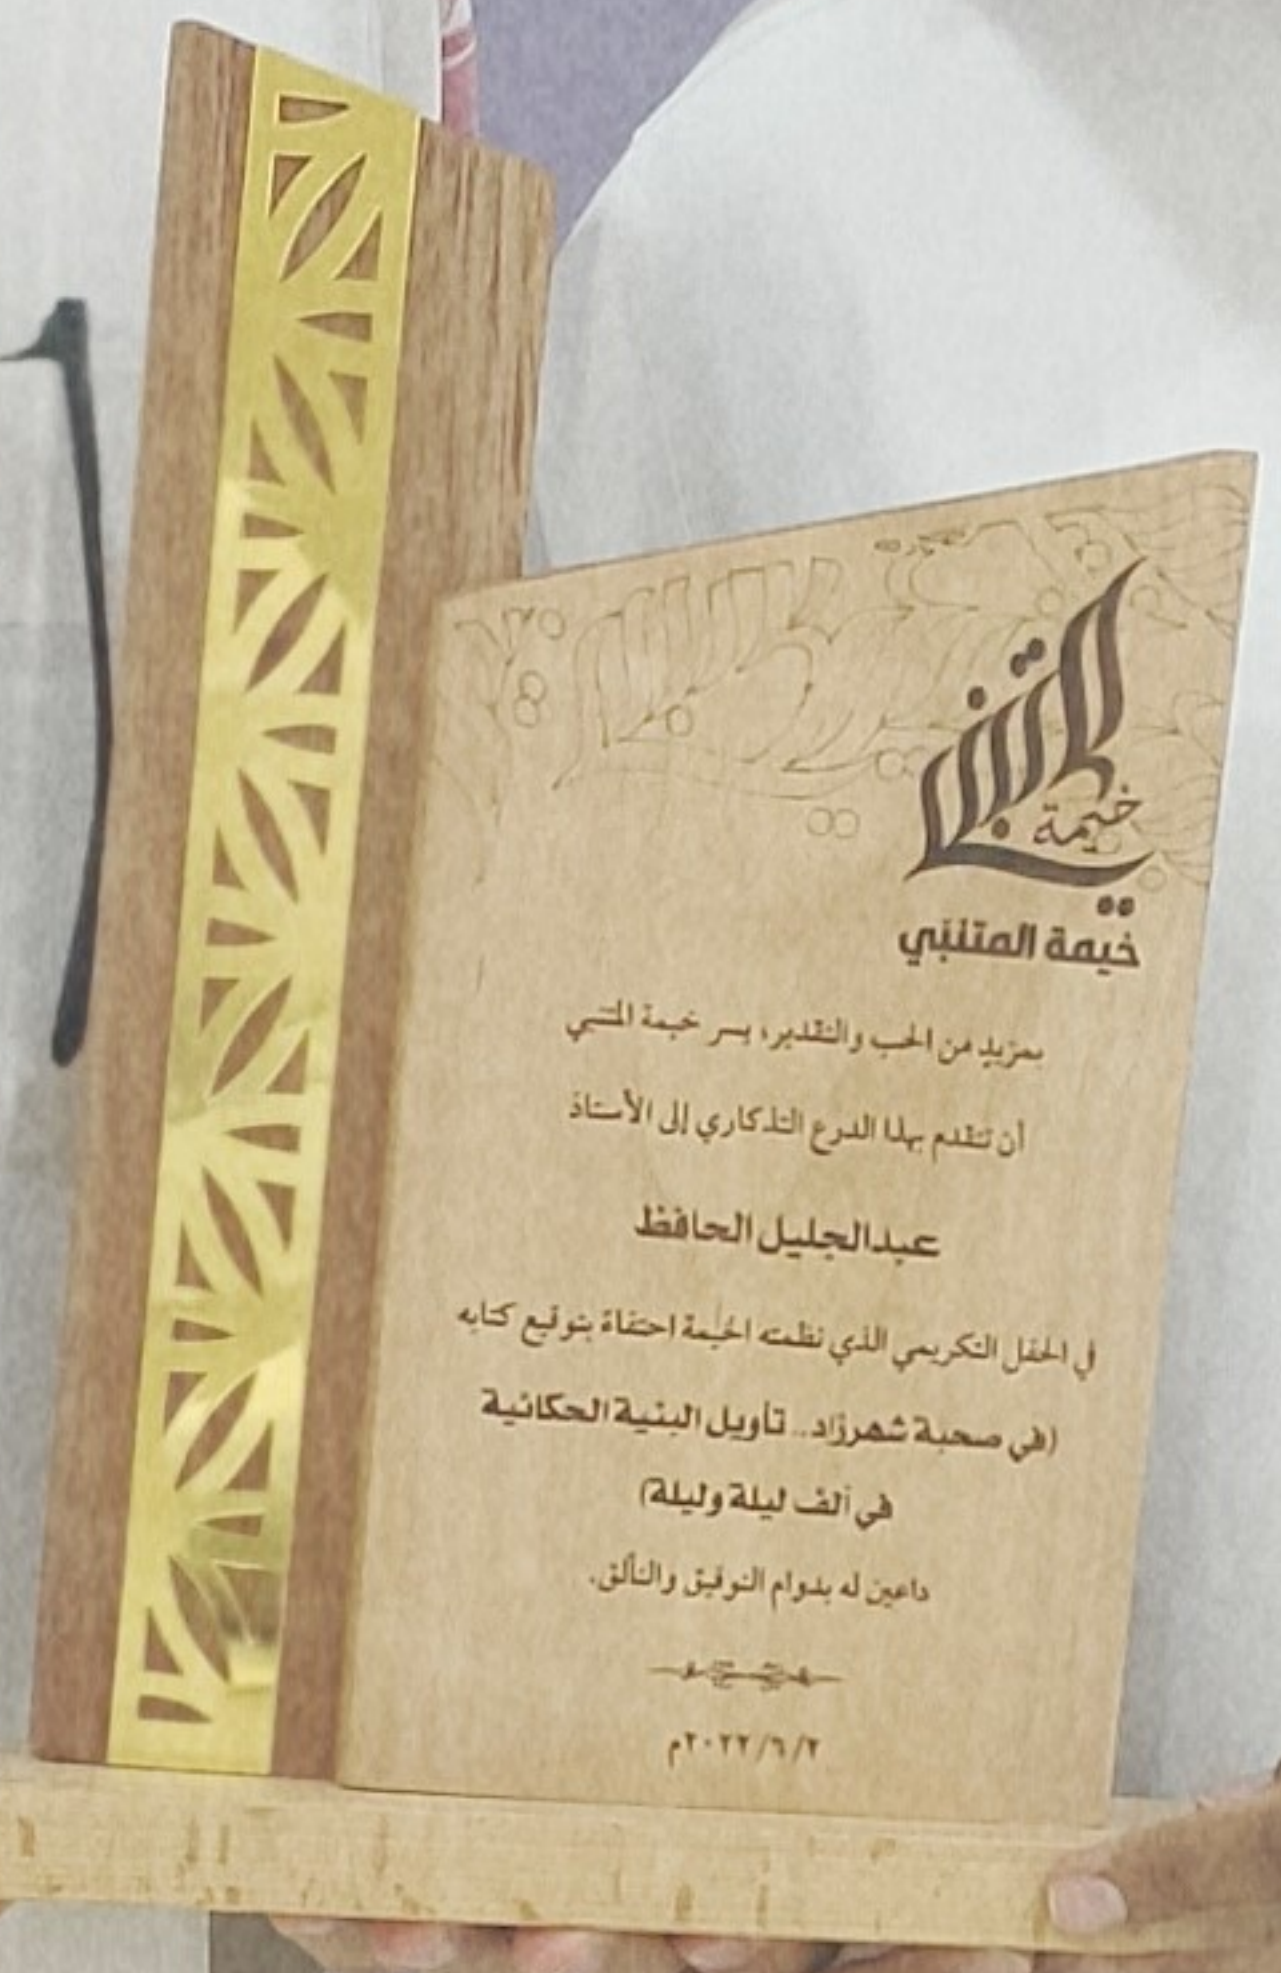 المتنبي
خيمة
خيمة المتنبي
بمزيد من الحب والتقدير، يسر خيمة المتنبي
أن تتقدم بهذا الدرع التذكاري إلى الأستاذ
عبدالجليل الحافظ
في الحفل التكريمي الذي نظمته الخيمة احتفاءً بتوقيع كتابه
(في صحبة شهرزاد.. تأويل البنية الحكائية
في ألف ليلة وليلة)
داعين له بدوام التوفيق والتألق.
٢/٦/٢٠٢٢م